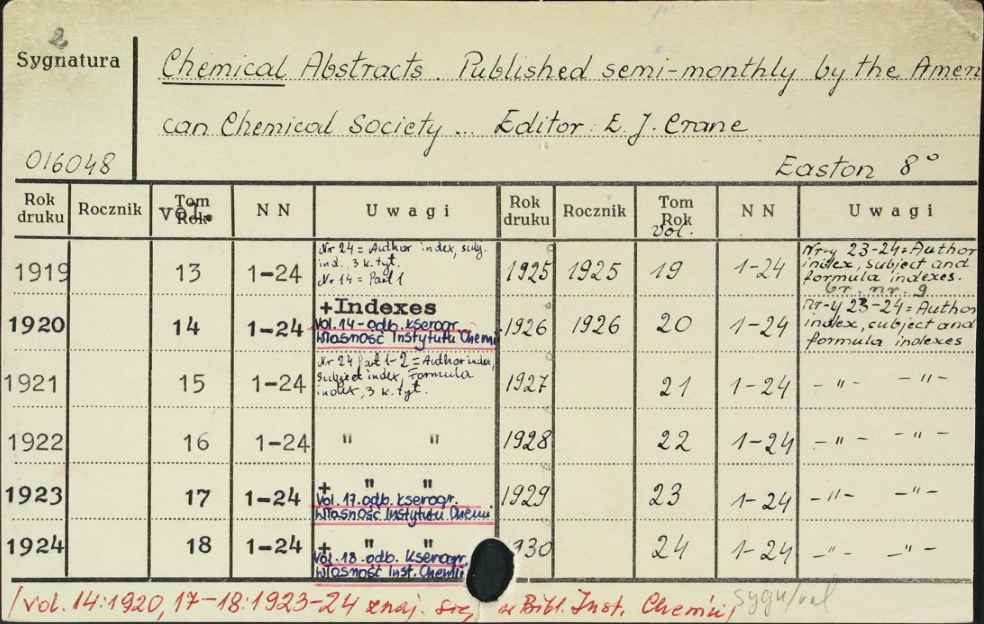 2
Sygnatura
Chemical Abstracts. Published semi-monthly by the Amen
can Chemical Society... Editor: E. J. Crane
016048
Easton 8°
Rok druku Rocznik Tom Rok Vol. NN Uwagi Rok druku Rocznik Tom Rok Vol. NN Uwagi
1919 13 1-24 Nr 24 = Author index, subj. ind. 3 k. tyt. Nr 14 = Part 1 1925 1925 19 1-24 Nr-y 23-24 = Author index, subject and formula indexes. br. nr. 9
1920 14 1-24 +Indexes Vol. 14 - odb. kserogr. Własność Instytutu Chemii 1926 1926 20 1-24 Nr-y 23-24 = Author index, subject and formula indexes
1921 15 1-24 Nr 24 Part 1-2 = Author index, Subject index, Formula index, 3 k. tyt. 1927 21 1-24 -"- -"-
1922 16 1-24 " " 1928 22 1-24 -"- -"-
1923 17 1-24 + " " Vol. 17. odb. kserogr. Własność Instytutu Chemii 1929 23 1-24 -"- -"-
1924 18 1-24 + " " Vol. 18 odb. Kserogr. Własność Inst. Chemii 930 24 1-24 -"- -"-
/vol. 14:1920, 17-18:1923-24 znaj. się w Bibl. Inst. Chemii/